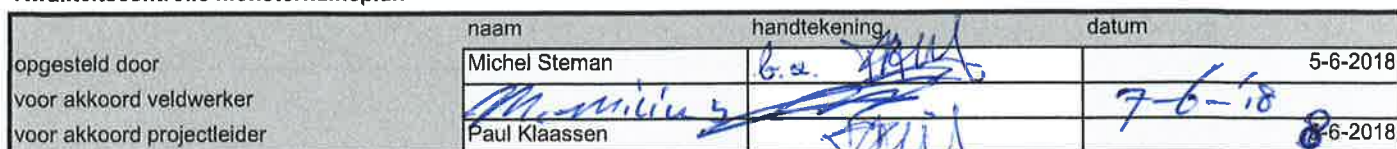 naam handtekening datum
opgesteld door Michel Steman b.a. 5-6-2018
voor akkoord veldwerker 7-6-'18
voor akkoord projectleider Paul Klaassen 8-6-2018